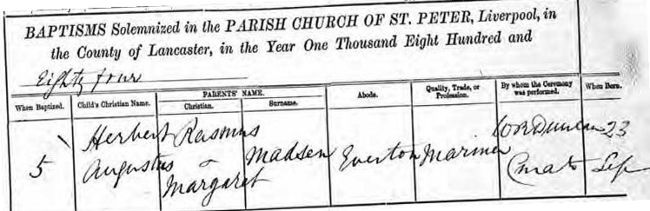 BAPTISMS Solemnized in the PARISH CHURCH OF ST. PETER, Liverpool, in
the County of Lancaster, in the Year One Thousand Eight Hundred and
Eighty four
When Baptized.
Child's Christian Name.
PARENTS' NAME.
Christian.
Surname.
Abode.
Quality, Trade, or
Profession.
By whom the Ceremony
was performed.
When Born.
5
Herbert
Augustus
Rasmus
&
Margaret
Madsen
Everton
Mariner
Duncan
Curate
23
Sep